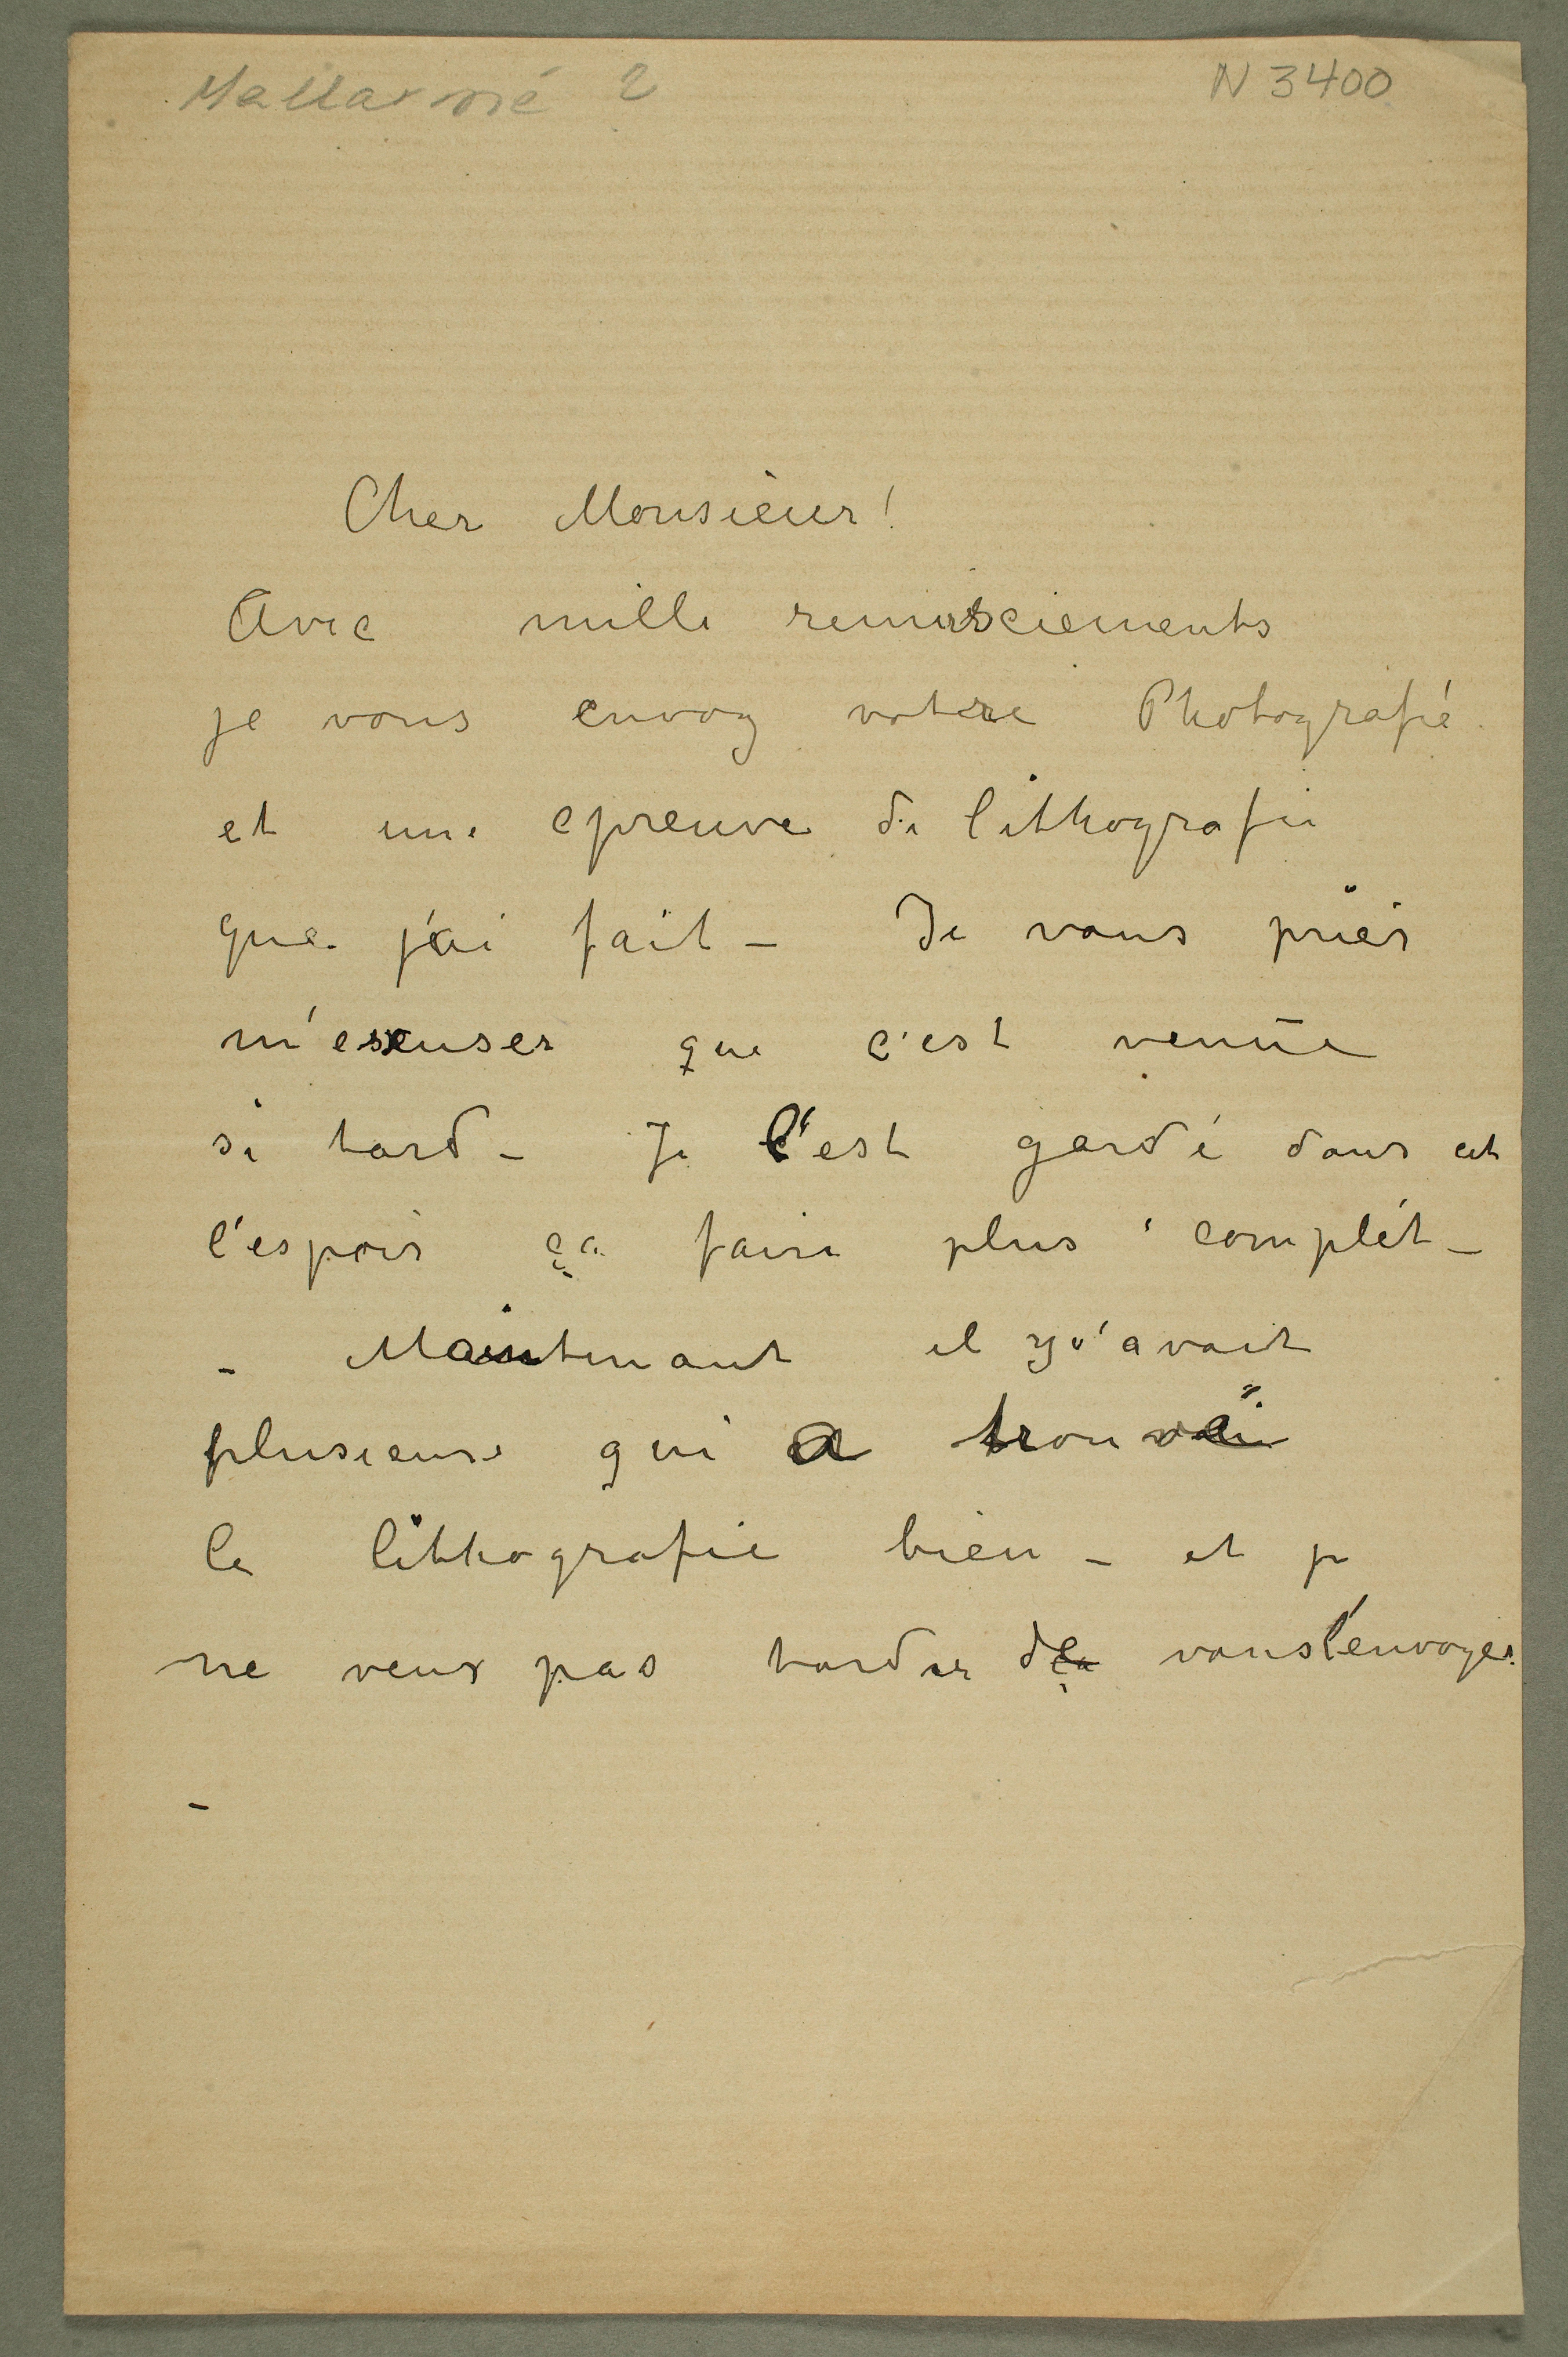 Mallarmé ?
N 3400
Cher Monsieur!
Avec mille remersciements
je vous envoy votre Photografié
et une epreuve de lithografie
que j'ai fait – Je vous prier
m'excuser que c'est venue
si tard – Je l'est gardé dans et
l'espoir ça faire plus complét –
– Maintenant il y a'avait
plusieurs qui a trouvé
la lithografie bien – et je
ne veux pas tarder de vous l'envoyer.
–